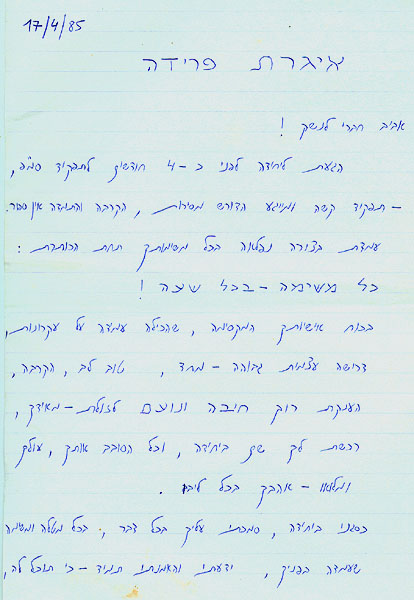 17/4/85
איגרת פרידה
אביב חברי לנשק !
הגעת ליחידה לפני כ-4 חודשים לתפקיד סמ"פ,
- תפקיד קשה ומייגע הדורש מסירות, הקרבה והתמדה אין ספור.
עמדת בצורה נפלאה בכל משימותיך תחת הכותרת :
כל משימה - בכל שעה !
בכוח אישיותך המקסימה, שהכילה עמידה על עקרונות,
דרישה עצמית גבוהה - מחד, טוב לב, הקרבה,
הענקת רוך חיבה ונועם לזולת - מאידך,
רכשת לך שם ביחידה, וכל הסובב אותך, עולך
ומלואו - אהבך בכל ליבו.
כסגני ביחידה, סמכתי עליך בכל דבר, בכל מטלה ומשימה
שעמדה בפניך, ידעתי והאמנתי תמיד - כי תוכל לה,